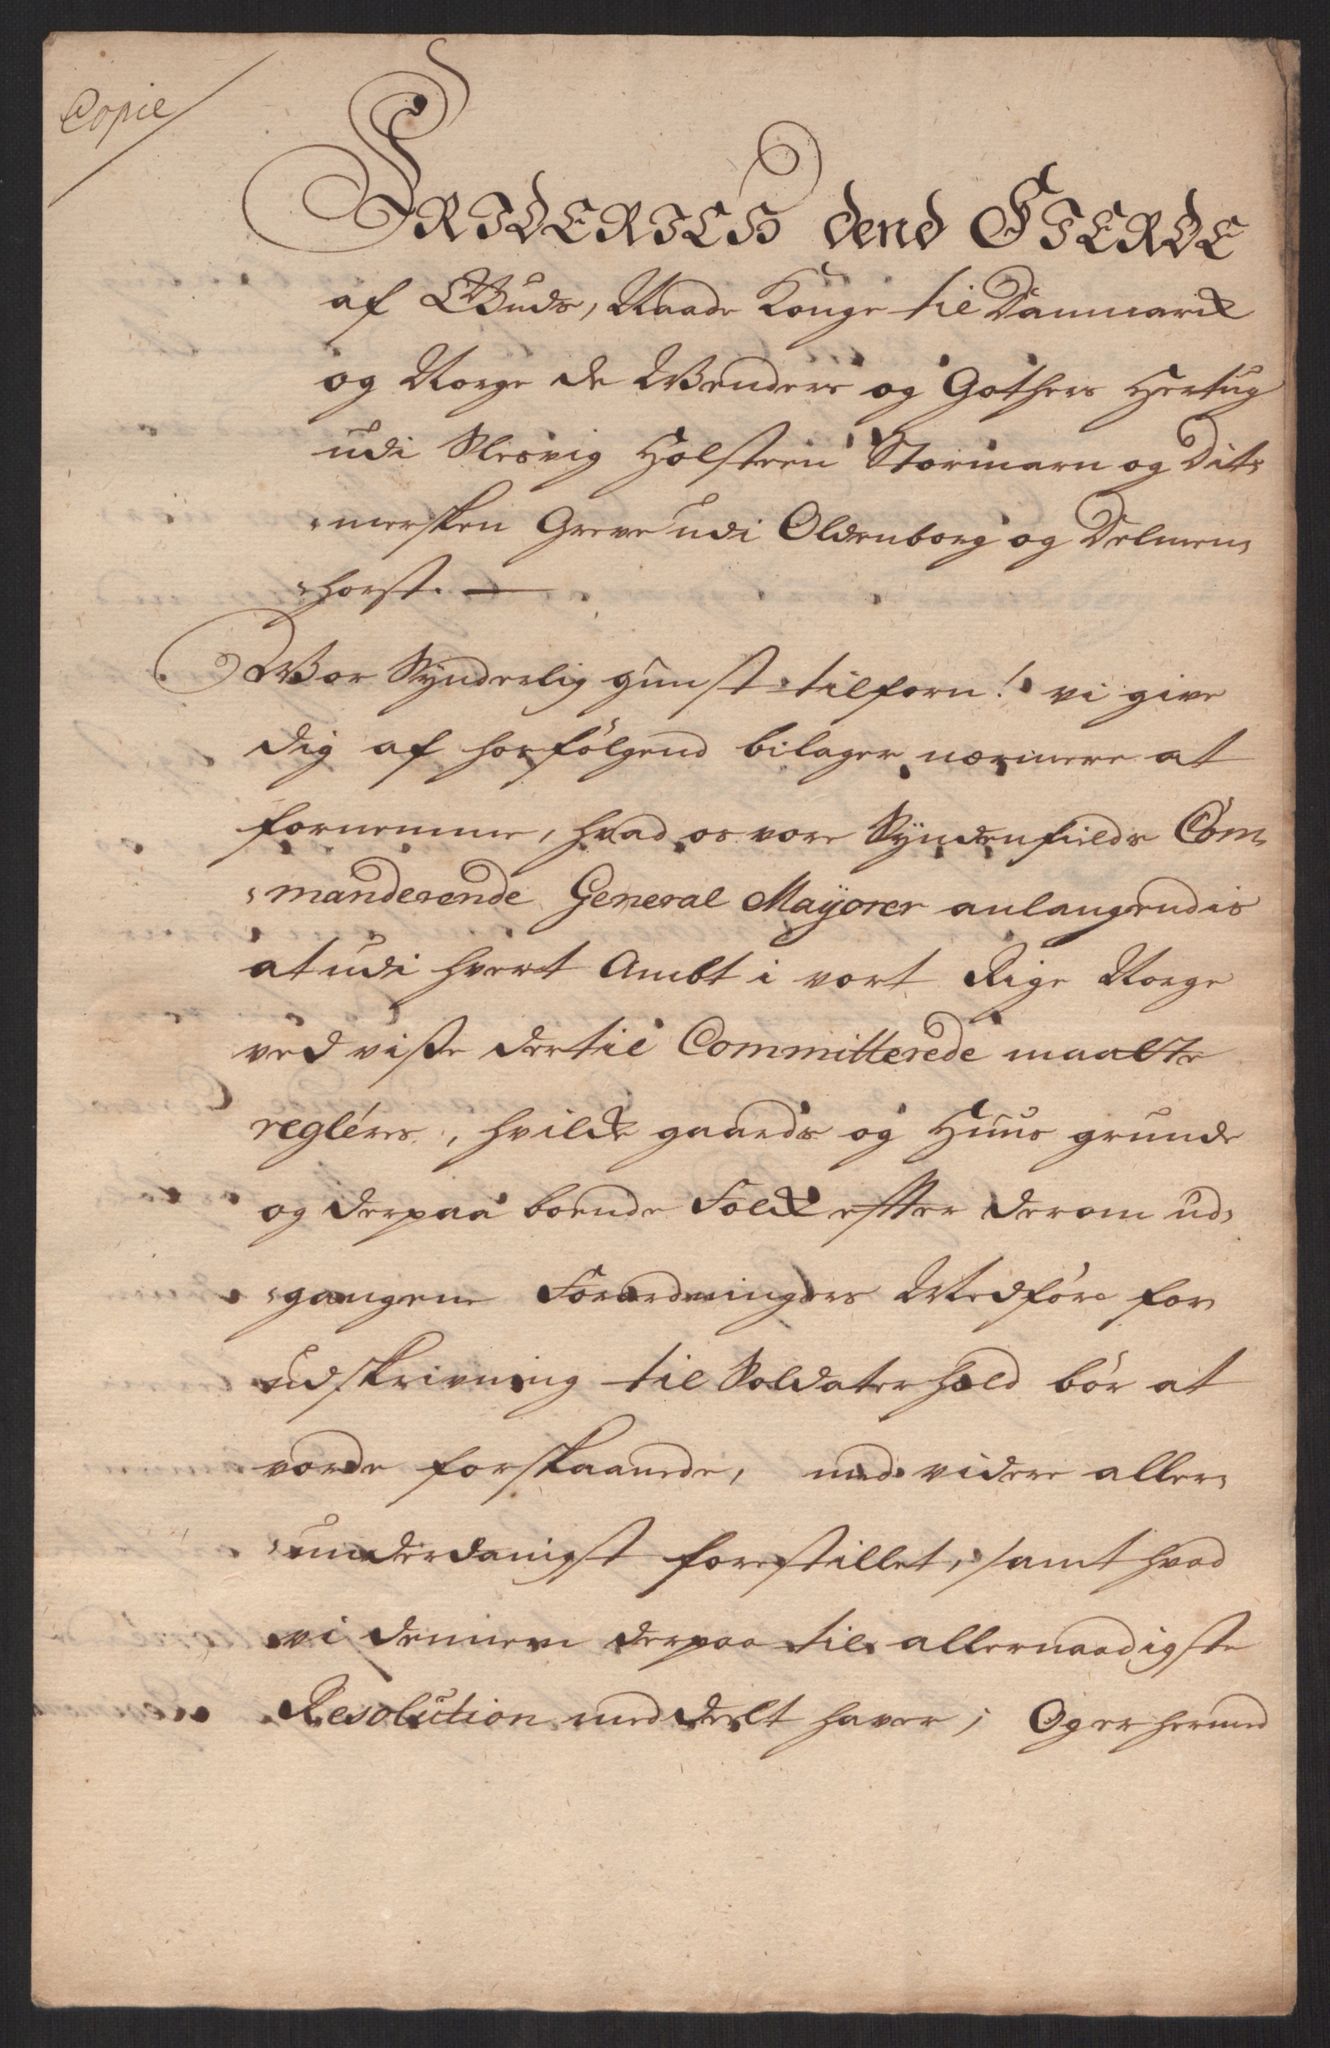 Copie
FRIDERICH dend FIERDE
af Guds, Naade Konge til Danmark
og Norge de Wenders og Gothers Hertug
udi Slesvig Holsteen Stormarn og Dit-
mersken Greve udi Oldenborg og Delmen-
horst. —
Wor Synderlig gunst tilforn! vi give
dig af hosfölgend bilager nærmere at
fornemme, hvad os vore Syndenfields Com-
manderende General Mayorer anlangendis
at udi hvert Ambt i vort Rige Norge
ved visse dertil Committerede maatte
regléres, hvilcke gaards og Huus grunde
og derpaa boende Folck effter derom ud-
gangene Forordningers Medföre for
udskrivning til Soldaterhold bör at
vorde forskaanede, med videre aller-
underdanigst forestillet, samt hvad
vi dennem derpaa til allernaadigste
Resolution meddeelt haver; Og er hermed